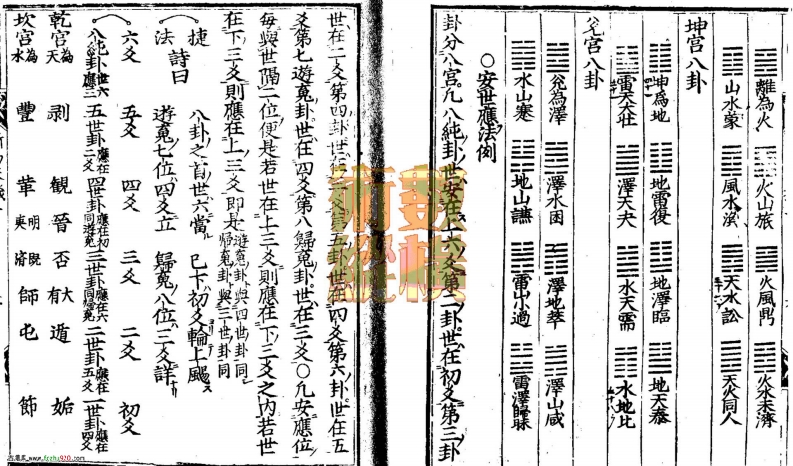 離為火 火山旅 火風鼎 火水未濟
山水蒙 風水渙 天水訟 天火同人
坤宮八卦
坤為地 地雷復 地澤臨 地天泰
雷天壯 澤天夬 水天需 水地比
兊宮八卦
兊為澤 澤水困 澤地萃 澤山咸
水山蹇 地山謙 雷山小過 雷澤歸妹
○安世應法例
卦分八宮凡八純卦世安在上六爻第二卦世在初爻第三卦
世在二爻第四卦世在三爻第五卦世在四爻第六卦世在五
爻第七遊䰟卦世在四爻第八歸䰟卦世在三爻○凡安應位
每與世隔二位便是若世在上三爻則應在下三爻之內若世
在下三爻則應在上三爻即是遊䰟卦與四世卦同歸䰟卦與三世卦同
捷 八卦之首世六當 已下初爻輪上颺
法詩曰 遊䰟七位四爻立 歸䰟八位三爻詳
六爻 五爻 四爻 三爻 二爻 初爻
八純卦世六應三 五世卦應在二爻 四世卦應在初同遊䰟 三世卦應在六同歸䰟 二世卦應在五爻 一世卦應在四爻
乾宮為天 剥 觀 晉 否 大有 遁 姤
坎宮為水 豐 革 明夷 既濟 師 屯 節
數術
縱橫
www.fczhy920.com